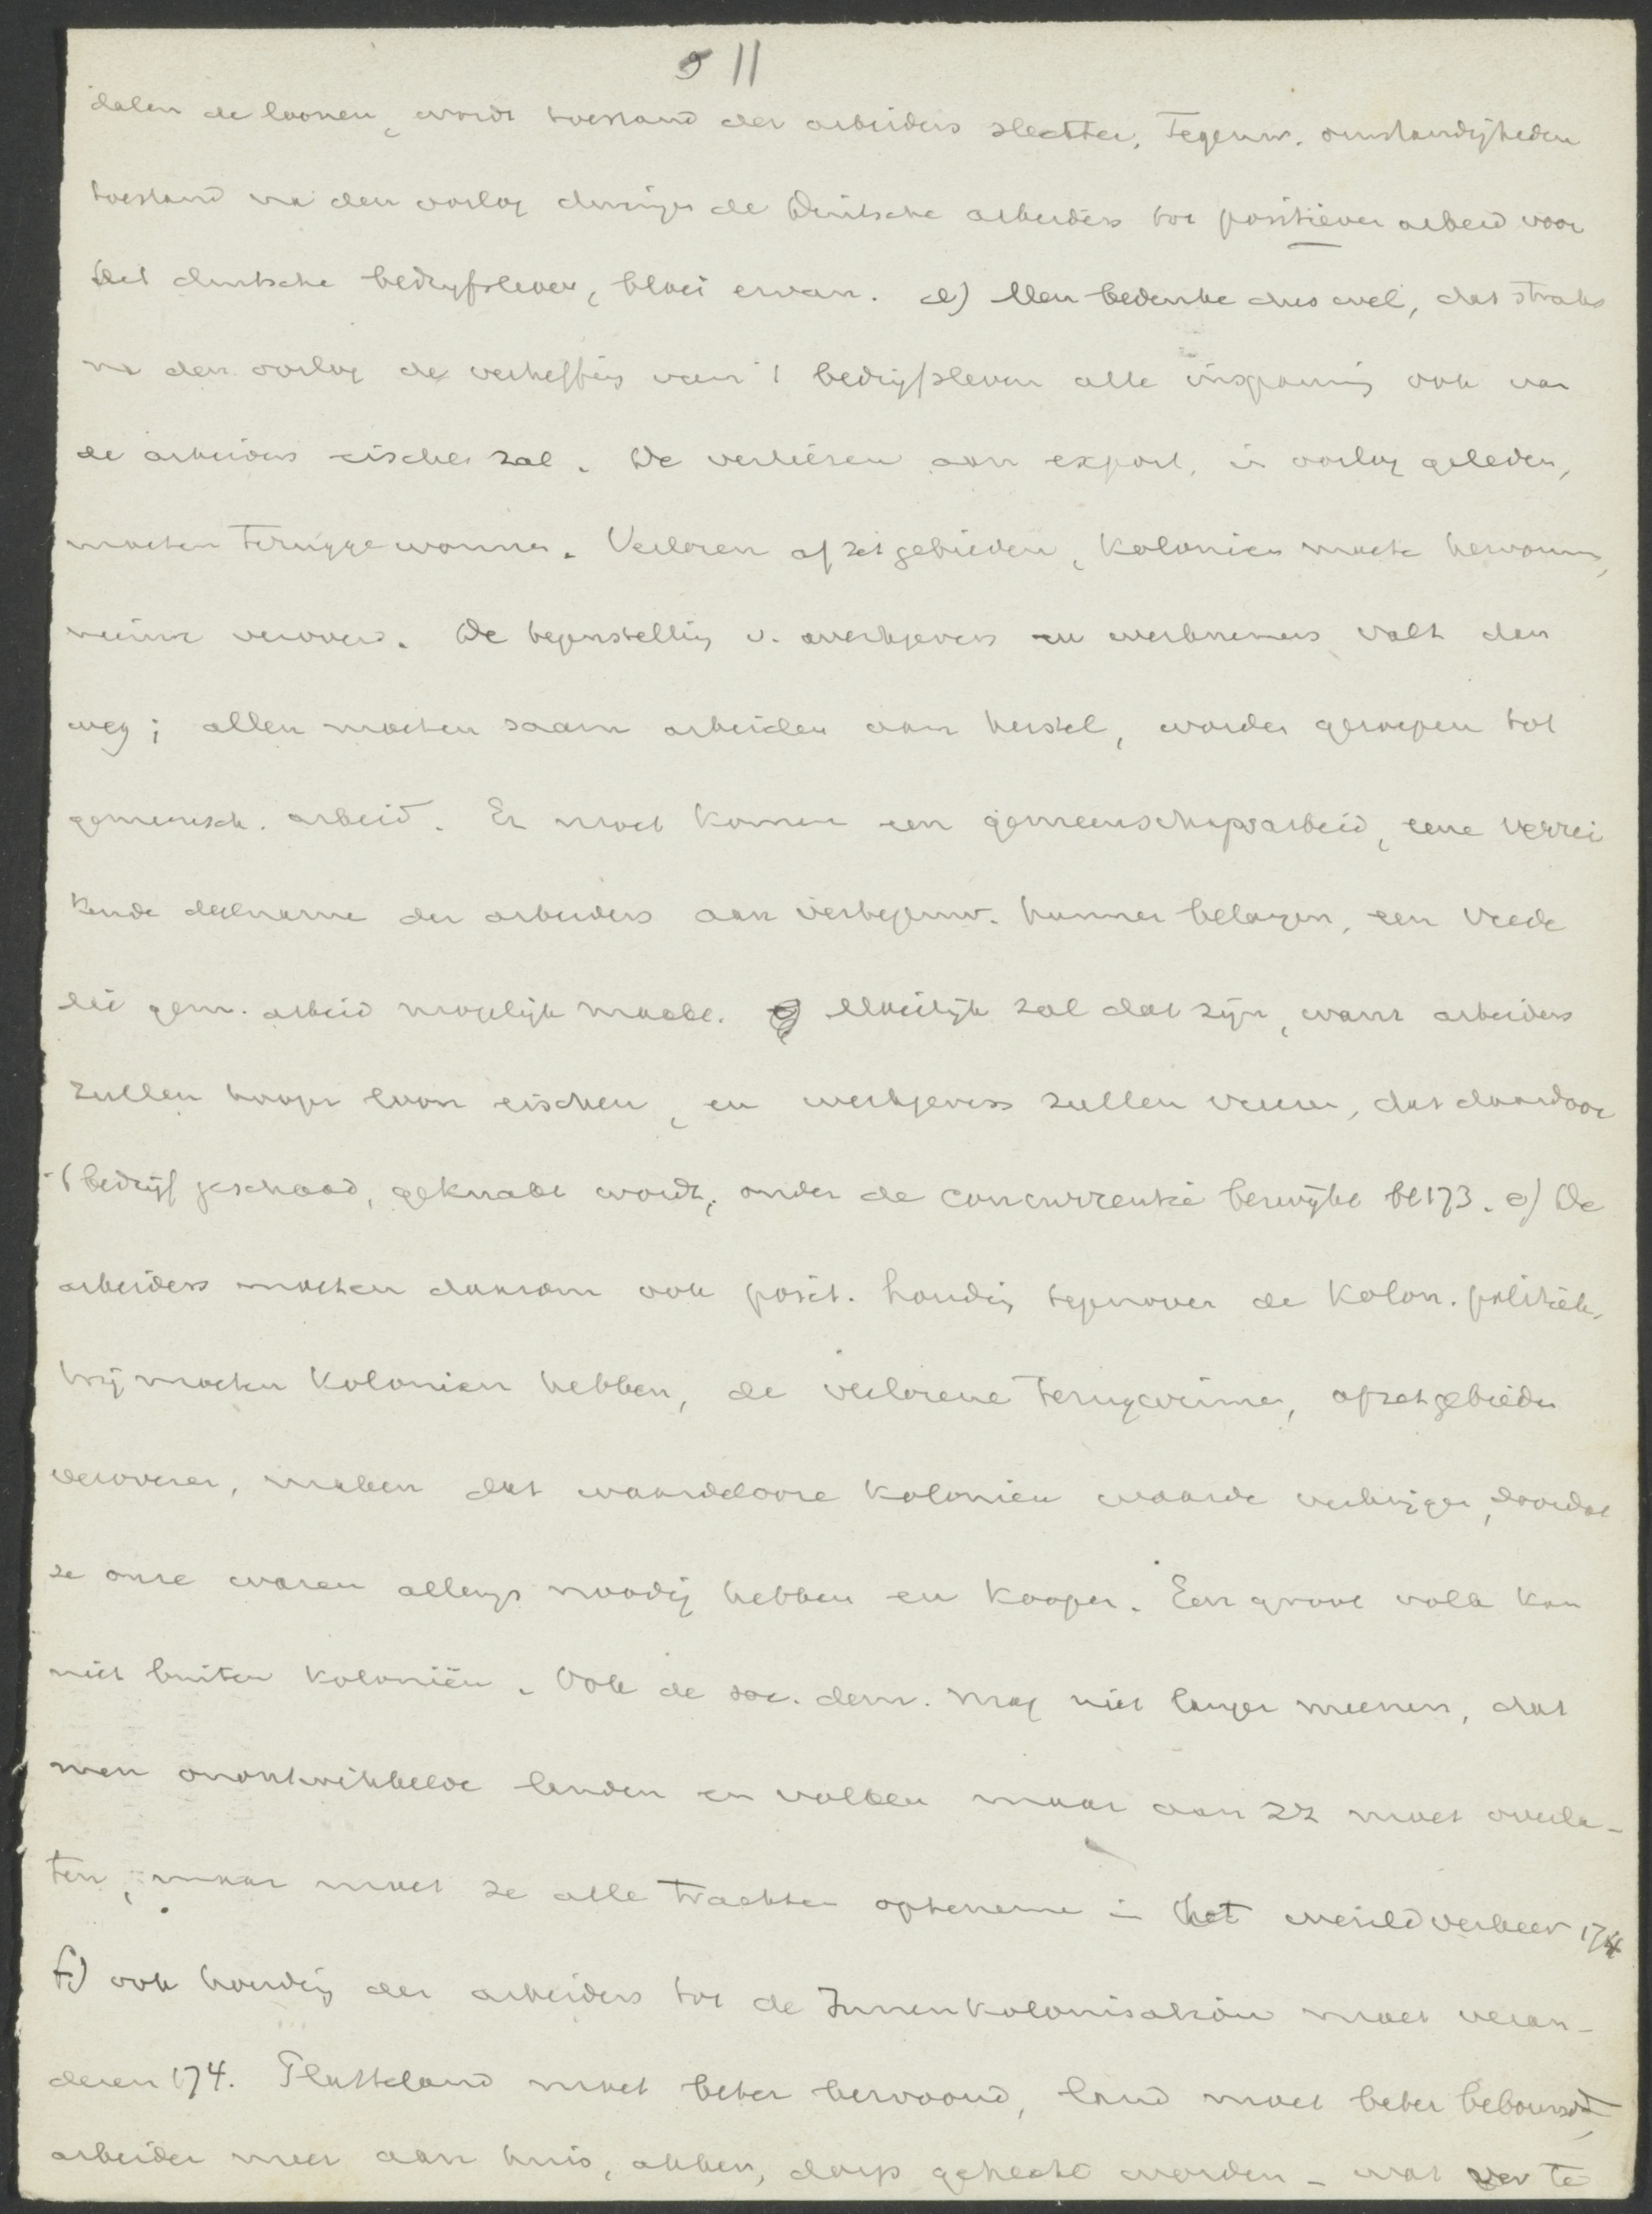 11
dalen de loonen, wordt toestand der arbeiders slechter. Tegenw. omstandigheden
toestand na den oorlog dwingen de Duitsche arbeiders tot positieven arbeid voor
het duitsche bedrijfsleven, bloei ervan. d) Men bedenke dus wel, dat straks
na den oorlog de verheffing van 't bedrijfsleven alle inspanning ook van
de arbeiders eischen zal. De verliezen aan export, in oorlog geleden,
moeten teruggewonnen. Verloren afzetgebieden, Kolonien moeten herwonnen,
nieuwe veroverd. De tegenstelling v. werkgevers en werknemers valt dan
weg; allen moeten saam arbeiden aan herstel, worden geroepen tot
gemeensch. arbeid. Er moet komen een gemeenschapsarbeid, eene verrei
kende deelname der arbeiders aan vertegenw. hunner belangen, een vrede
die gem. arbeid mogelijk maakt. Moeilijk zal dat zijn, want arbeiders
zullen hooger loon eischen, en werkgevers zullen vreezen, dat daardoor
't bedrijf geschaad, geknakt wordt, onder de concurrentie bezwijkt bl 173. e) De
arbeiders moeten daarom ook posit. houding tegenover de Kolon. politiek.
Wij moeten Kolonien hebben, de verlorene terugwinnen, afzetgebieden
veroveren, maken dat waardeloore Kolonien waarde verkrijgen, doordat
ze onze waren allengs noodig hebben en koopen. Een groot volk kan
niet buiten Koloniën. Ook de soc. dem. mag niet langer meenen, dat
men onontwikkelde landen en volken maar aan zz moet overla-
ten, maar moet ze alle trachten opteneme in het wereldverkeer 174
f) ook houding der arbeiders tot de Innenkolonisation moet veran-
deren 174. Platteland moet beter bewoond, land moet beter bebouwd,
arbeider meer aan huis, akker, dorp gehecht worden - wat te